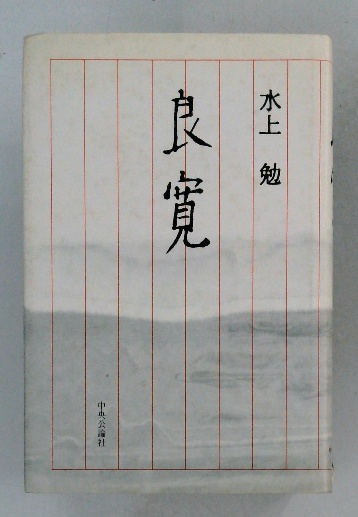 水上 勉
良寛
中央公論社